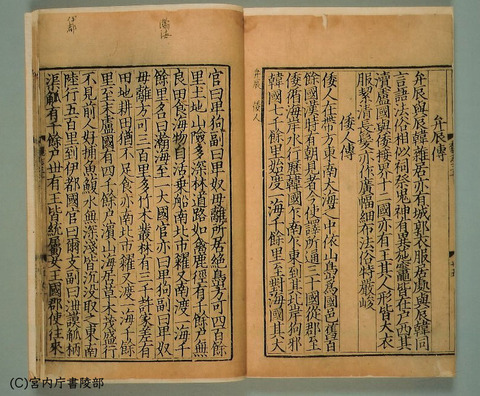 弁辰　倭人
弁辰傳
弁辰與辰韓雜居亦有城郭衣服居處與辰韓同
言語法俗相似祠祭鬼神有異施竈皆在戶西其
瀆盧國與倭接界十二國亦有王其人形皆大衣
服絜清長髮亦作廣幅細布法俗特嚴峻
倭人傳
倭人在帶方東南大海之中依山㠀為國邑舊百
餘國漢時有朝見者今使譯所通三十國從郡至
倭循海岸水行歷韓國乍南乍東到其北岸狗邪
韓國七千餘里始度一海千餘里至對海國其大
瀚海
伊都
官曰卑狗副曰卑奴母離所居絕㠀方可四百餘
里土地山險多深林道路如禽鹿徑有千餘戶無
良田食海物自活乗船南北市糴又南渡一海千
餘里名曰瀚海至一大國官亦曰卑狗副曰卑奴
母離方可三百里多竹木叢林有三千許家差有
田地耕田猶不足食亦南北市糴又渡一海千餘
里至末盧國有四千餘戶濱山海居草木茂盛行
不見前人好捕魚鰒水無深淺皆沈没取之東南
陸行五百里到伊都國官曰爾支副曰泄謨觚柄
渠觚有千餘戶世有王皆統屬女王國郡使往來
(C)宮内庁書陵部